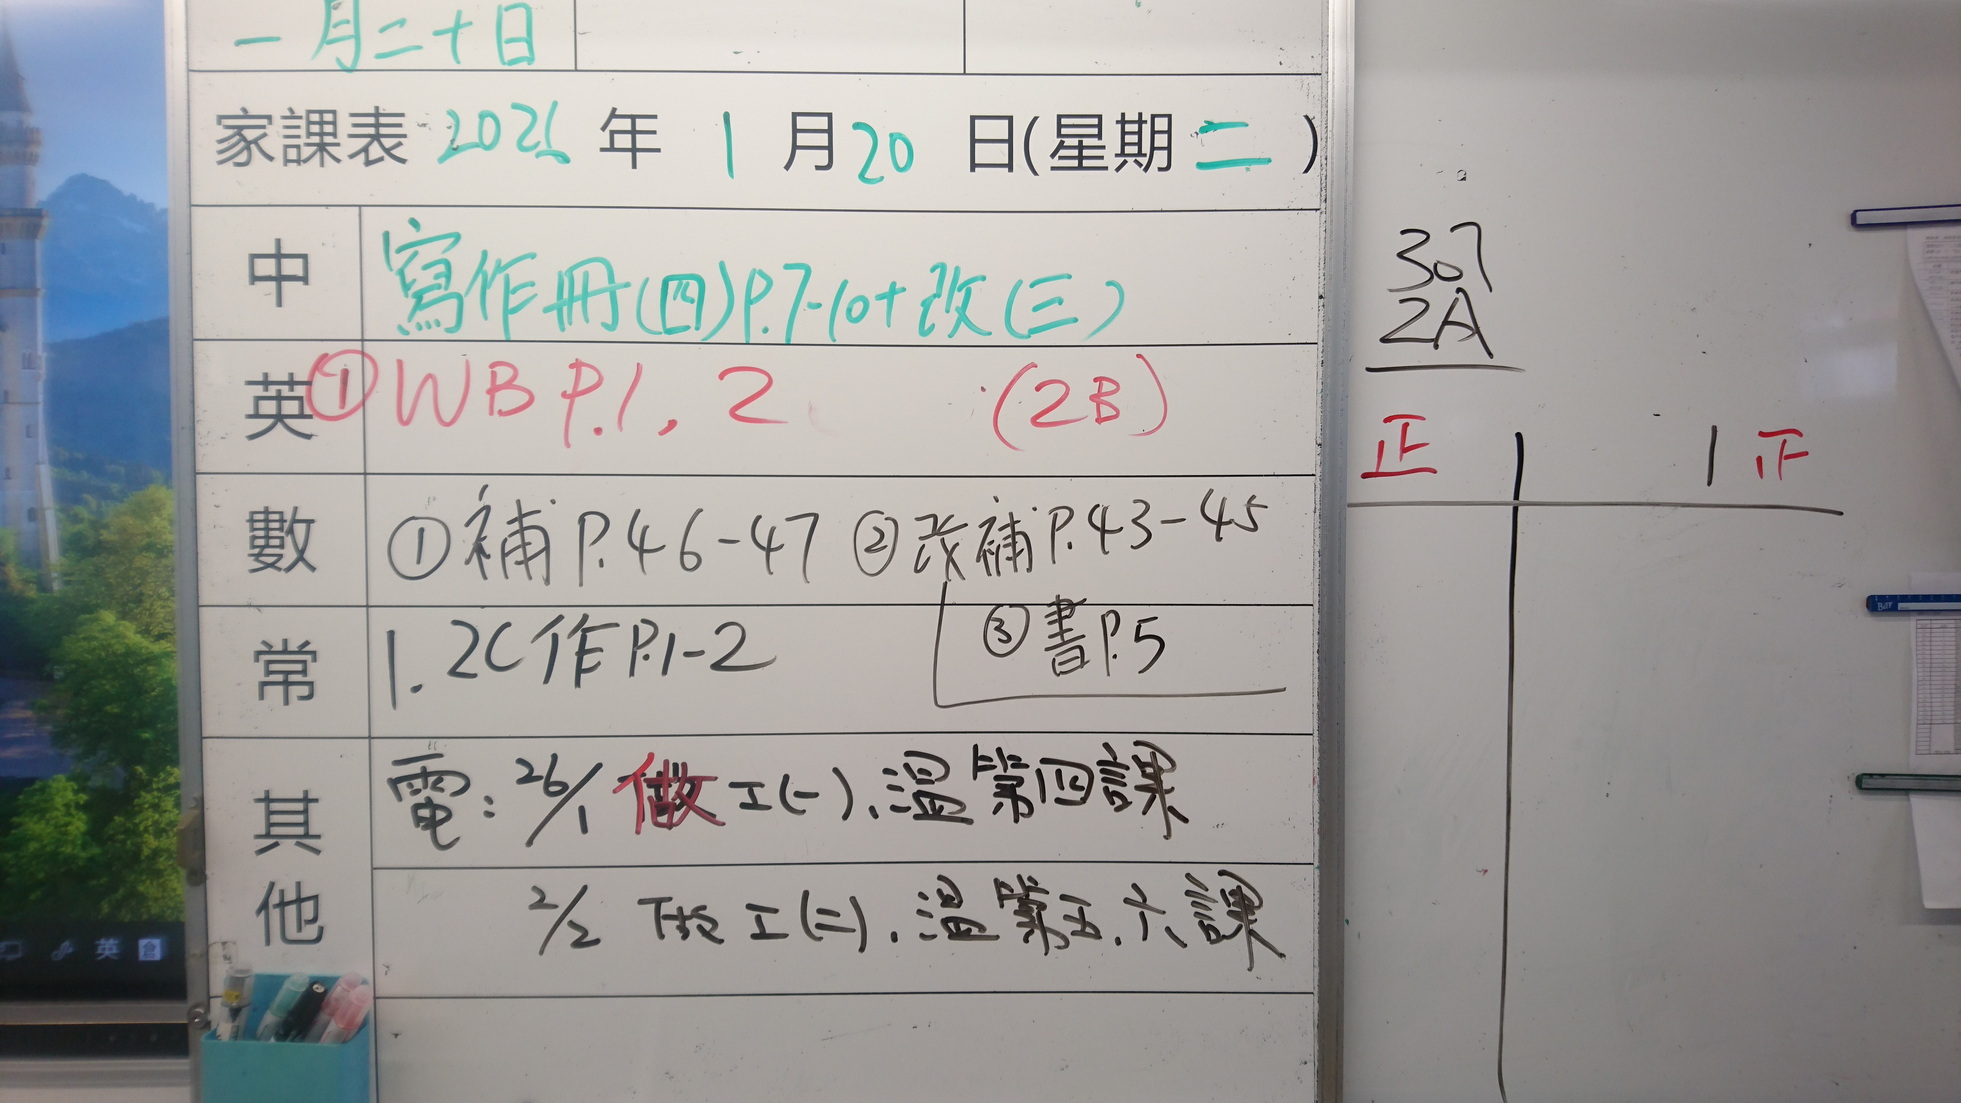 一月二十日
家課表 2026 年 1 月 20 日(星期 二 )
中 寫作冊(四)P.7-10+改(三)
英 ①WB P.1, 2 (2B)
數 ①補P.46-47 ②改補P.43-45
③書P.5
常 1. 2C作P.1-2
其他
電: 26/1 做工(一)、溫第四課
2/2 做工(二)、溫第五、六課
307
2A
正 正
英 倉